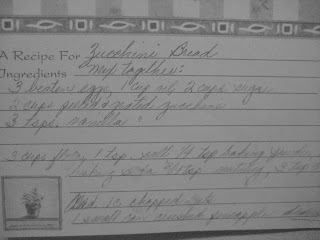 A Recipe For Zucchini Bread
Ingredients Mix together:
3 beaten eggs, 1 cup oil 2 cups sugar
2 cups peeled & grated zucchini
3 tsps. vanilla
3 cups flour, 1 tsp. salt 1/4 tsp baking powder
baking soda 3 tsp
Add 1 c chopped nuts
1 small can crushed pineapple